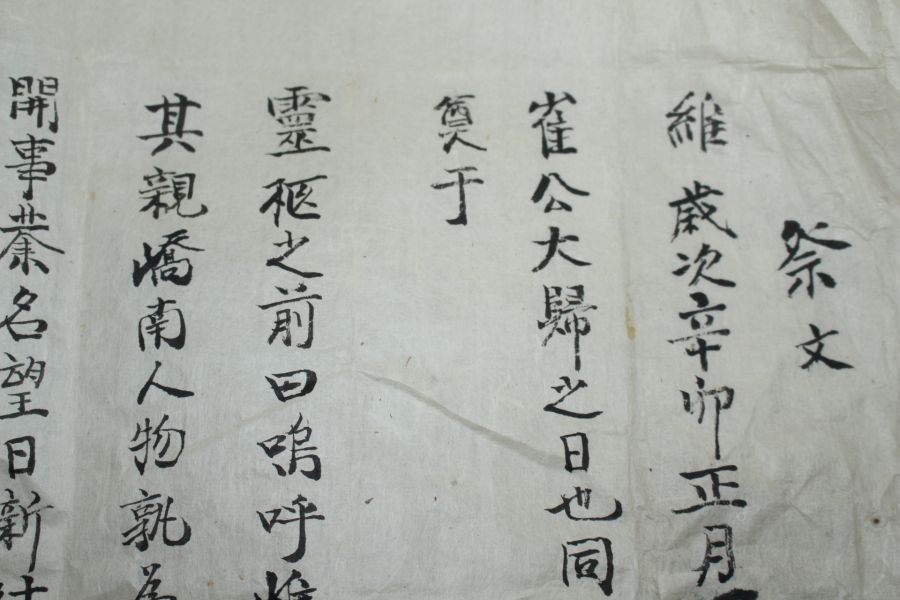 祭文
維歲次辛卯正月
崔公大歸之日也同
奠于
靈柩之前曰嗚呼
其親嶠南人物孰為
開事業名望日新